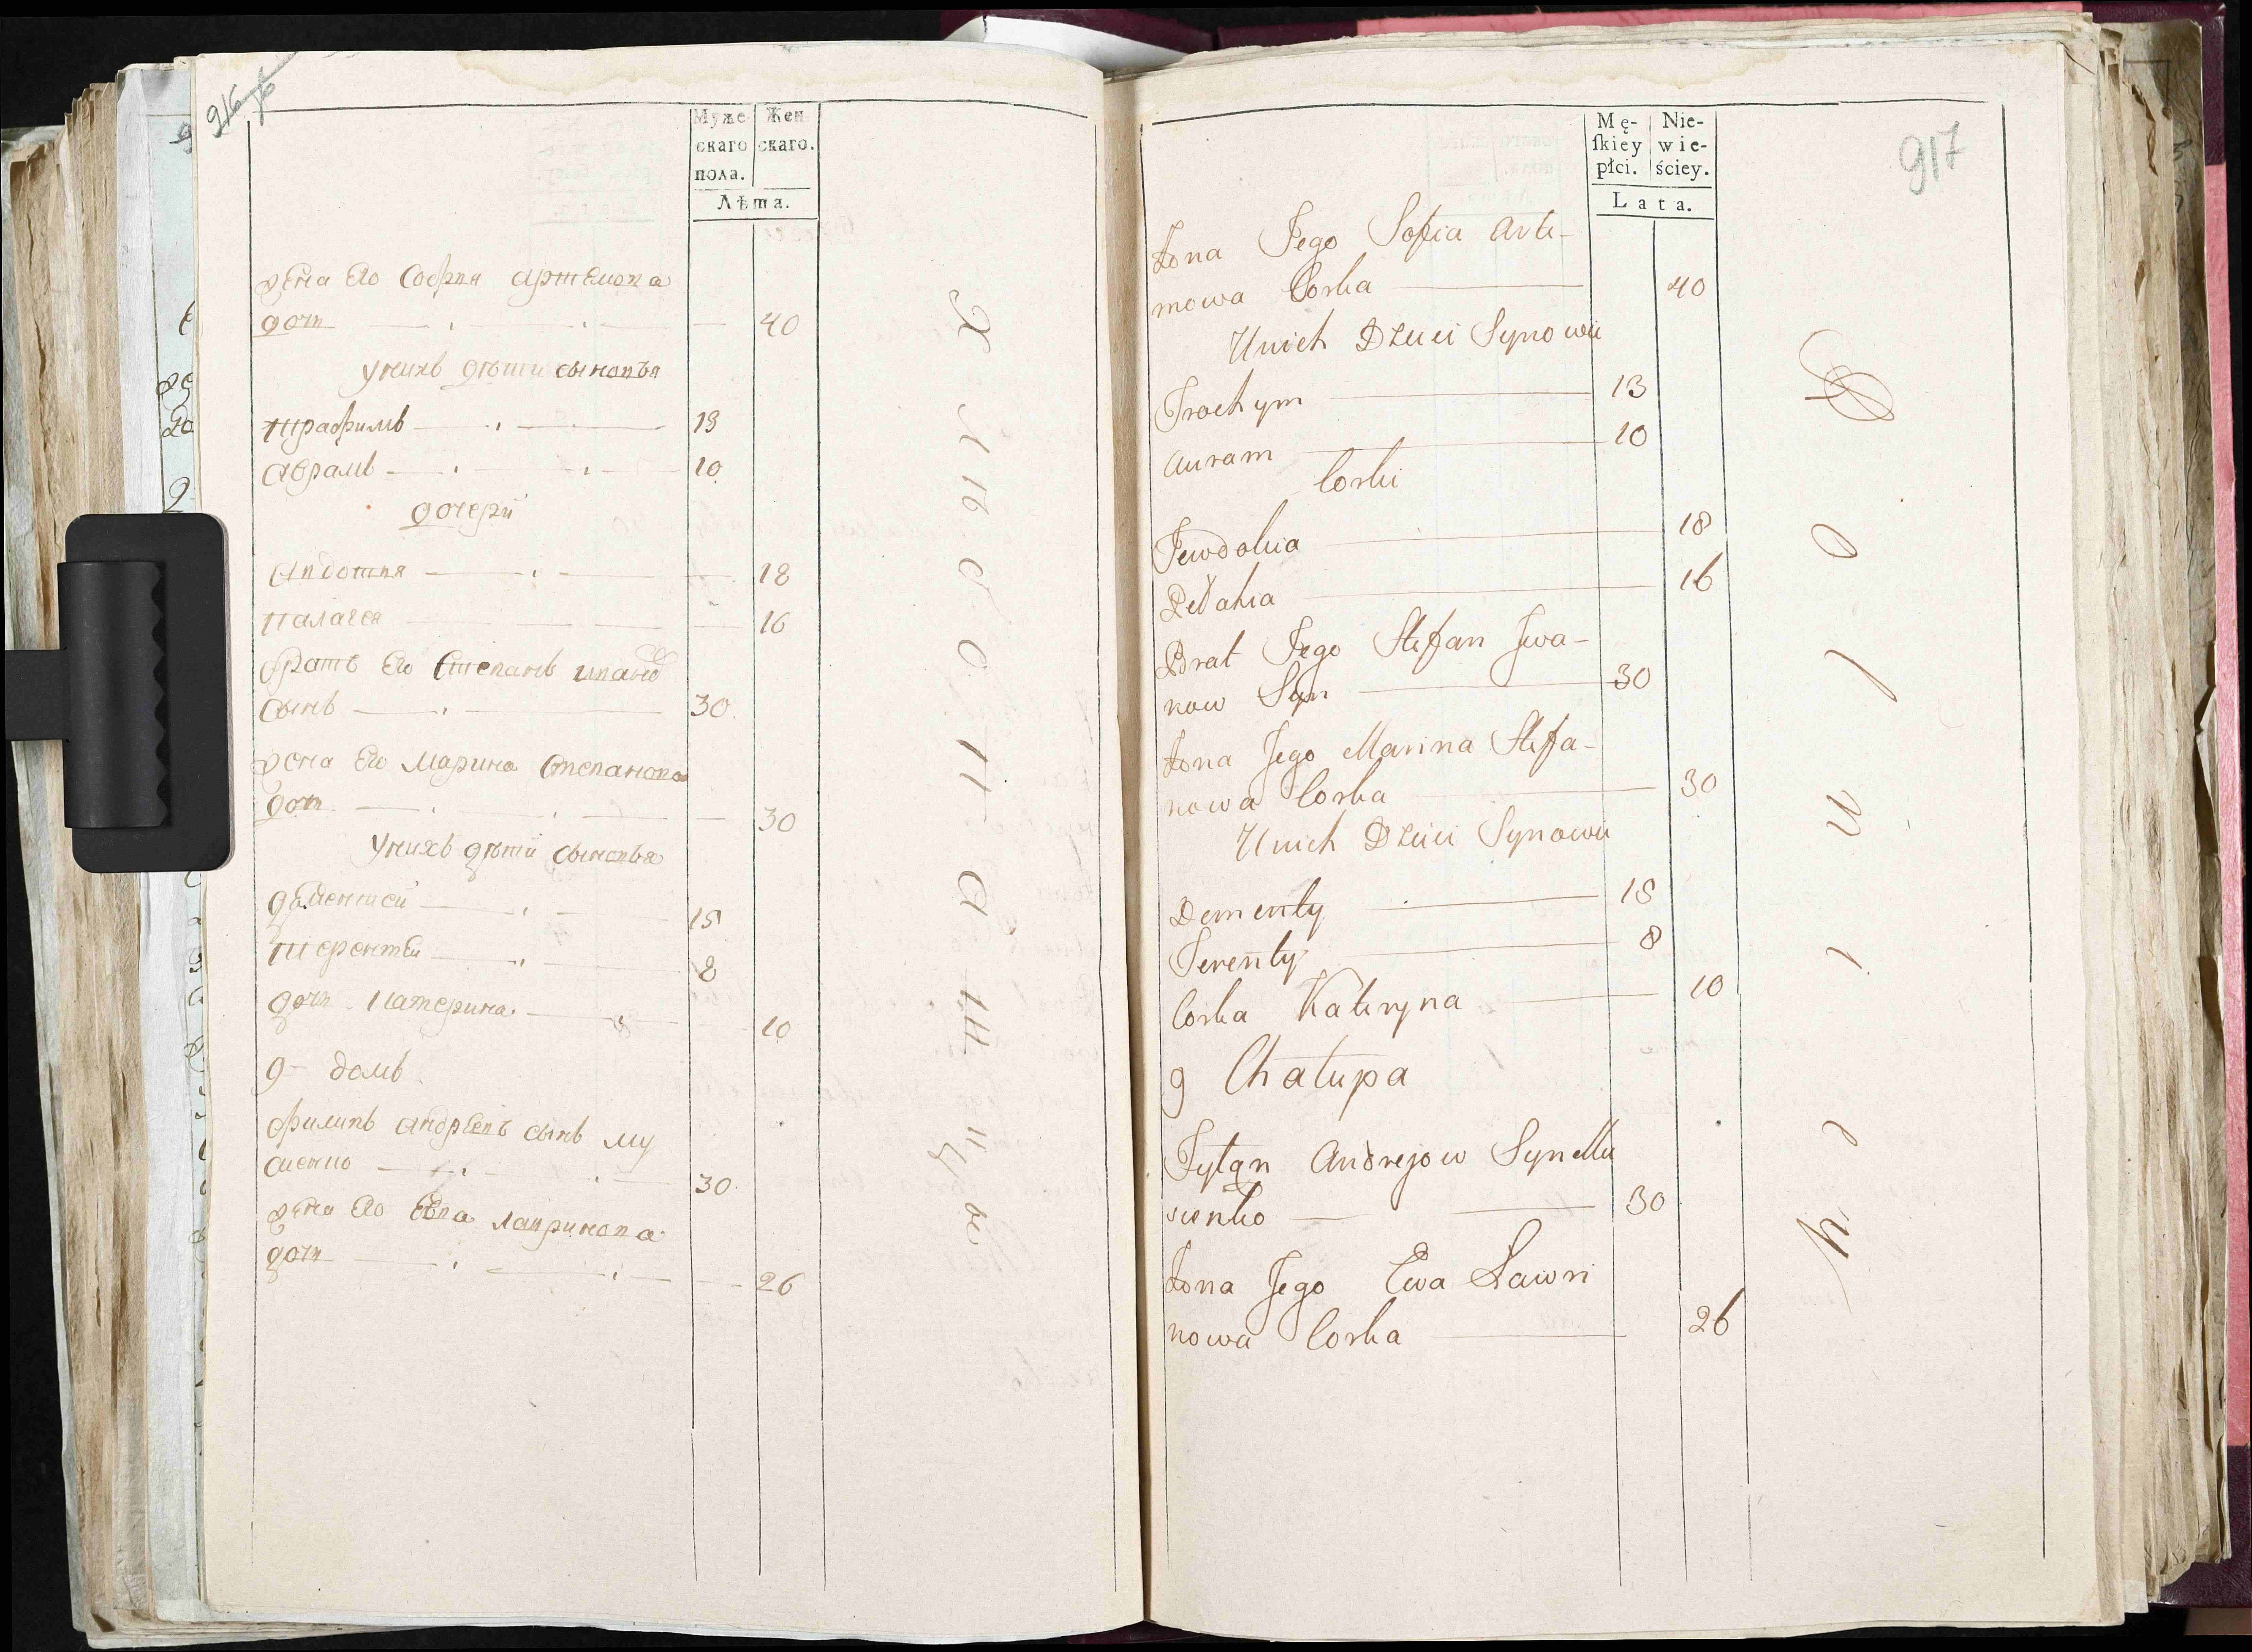 916
Муже-
скаго
пола.
Жен
скаго.
Лѣта.
жена Его София артемова
дочь 40
унихъ дѣти сыновья
трафимъ 13
аврамъ 10
дочери
Авдотия 18
палагея 16
братъ Его Степанъ ивановъ
сынъ 30
жена Его марина Степанова
дочь 30
унихъ дѣти сыновья
дементей 15
терентеи 8
дочь катерина 10
9 домъ
филипъ андрѣевъ сынъ му
сиенко 30
жена Его Евва лавринова
дочь 26
917
Mę-
ſkiey
płci.
Nie-
wie-
ściey.
Lata.
Żona Jego Sofia Arte-
mowa Corka 40
Unich Dzieci Synowie
Trochym 13
Auram 10
Corki
Jewdokia 18
Pełahia 16
Brat Jego Stefan Jwa-
now Syn 30
Żona Jego Marina Stefa-
nowa Corka 30
Unich Dzieci Synowie
Dementy 15
Terenty 8
Corka Kateryna 10
9 Chałupa
Andrejow Syn Mu
sienko 30
Żona Jego Ewa Ławri
nowa Corka 26